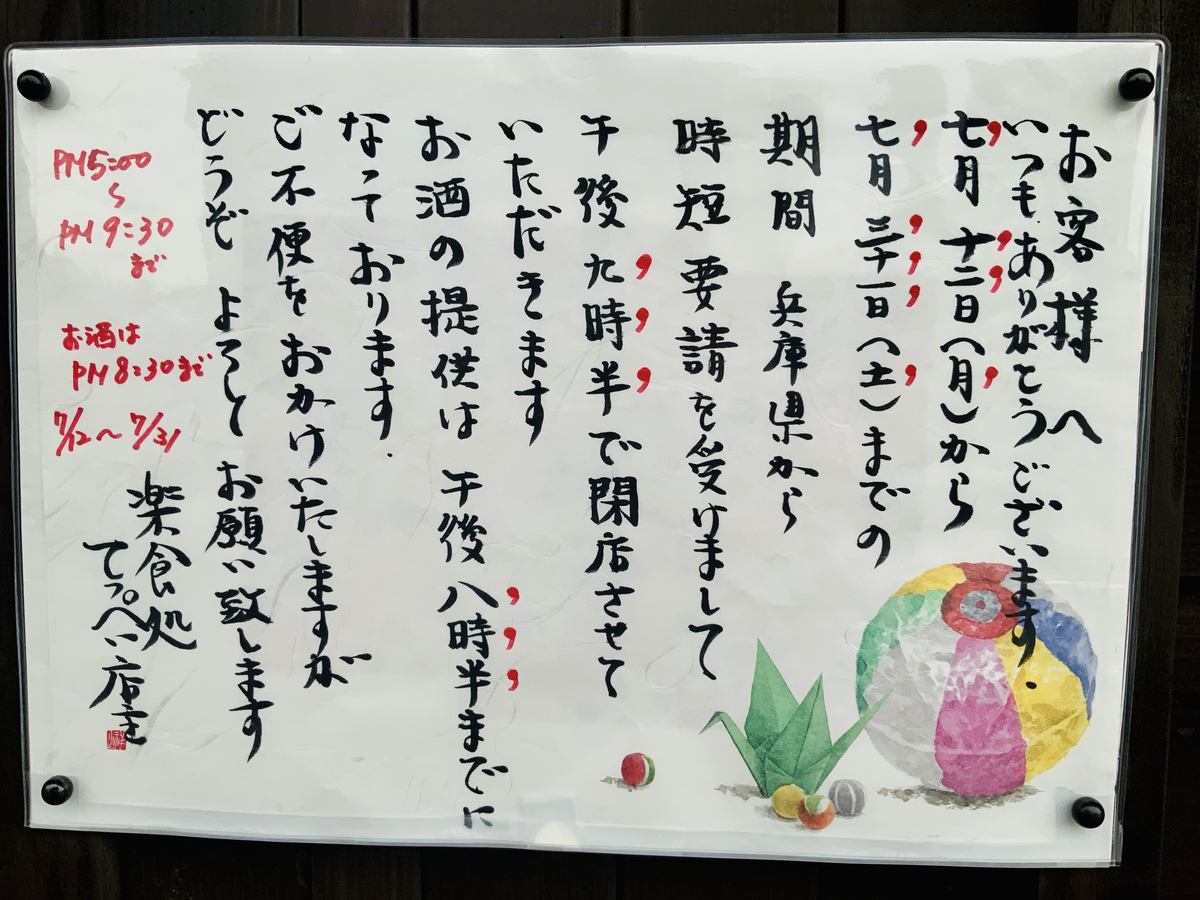 お客様へ
いつもありがとうございます.
七月十二日(月)から
七月三十一日(土)までの
期間 兵庫県から
時短要請を受けまして
午後九時半で閉店させて
いただきます
お酒の提供は 午後八時半までに
なっております.
ご不便をおかけいたしますが
どうぞ よろしく お願い致します
楽食処
てっぺい店主
PM5:00
〜
PM9:30
まで
お酒は
PM8:30まで
7/12〜7/31